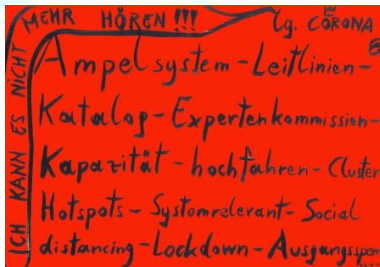 ICH KANN ES NICHT MEHR HÖREN!!!
Lg. CORONA
Ampelsystem - Leitlinien -
Katalog - Expertenkommission -
Kapazität - hochfahren - Cluster
Hotspots - Systemrelevant - Social
distancing - Lockdown - Ausgangssperr